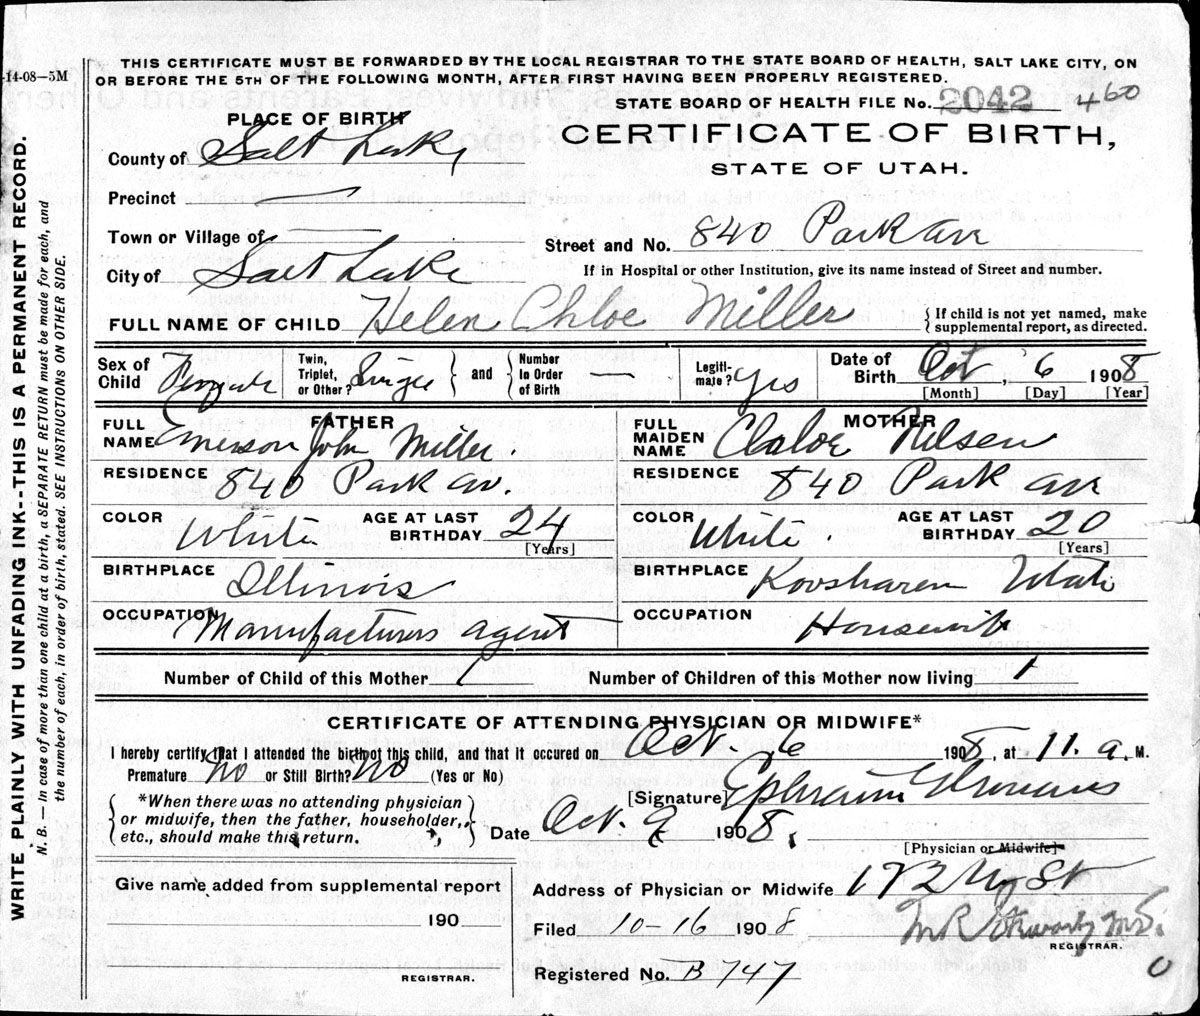 -14-08—5M
THIS CERTIFICATE MUST BE FORWARDED BY THE LOCAL REGISTRAR TO THE STATE BOARD OF HEALTH, SALT LAKE CITY, ON
OR BEFORE THE 5TH OF THE FOLLOWING MONTH, AFTER FIRST HAVING BEEN PROPERLY REGISTERED.
STATE BOARD OF HEALTH FILE No. 2042 460
PLACE OF BIRTH
CERTIFICATE OF BIRTH,
STATE OF UTAH.
County of Salt Lake
Precinct —
Town or Village of —
Street and No. 840 Park av
City of Salt Lake
If in Hospital or other Institution, give its name instead of Street and number.
FULL NAME OF CHILD Helen Chloe Miller
{ If child is not yet named, make
supplemental report, as directed.
Sex of Child Female
Twin, Triplet, or Other? Single } and { Number In Order of Birth —
Legiti-mate? yes
Date of Birth Oct, 6 1908
[Month] [Day] [Year]
FATHER
FULL NAME Emerson John Miller.
RESIDENCE 840 Park av.
COLOR White AGE AT LAST BIRTHDAY 24
[Years]
BIRTHPLACE Illinois
OCCUPATION Manufacturers agent
MOTHER
FULL MAIDEN NAME Chloe Nelsen
RESIDENCE 840 Park av
COLOR White. AGE AT LAST BIRTHDAY 20
[Years]
BIRTHPLACE Koosharen Utah
OCCUPATION Housewife
Number of Child of this Mother 1 Number of Children of this Mother now living 1
CERTIFICATE OF ATTENDING PHYSICIAN OR MIDWIFE*
I hereby certify that I attended the birth of this child, and that it occured on Oct. 6 1908, at 11. a. M.
Premature No or Still Birth? No (Yes or No)
{ *When there was no attending physician
or midwife, then the father, householder,
etc., should make this return. }
[Signature] Ephraim
Date Oct. 9 1908.
[Physician or Midwife]
Give name added from supplemental report
190
REGISTRAR.
Address of Physician or Midwife 172 St
Filed 10-16 1908 M.D.
REGISTRAR.
Registered No. B 747
WRITE PLAINLY WITH UNFADING INK--THIS IS A PERMANENT RECORD.
N. B. — In case of more than one child at a birth, a SEPARATE RETURN must be made for each, and
the number of each, in order of birth, stated. SEE INSTRUCTIONS ON OTHER SIDE.